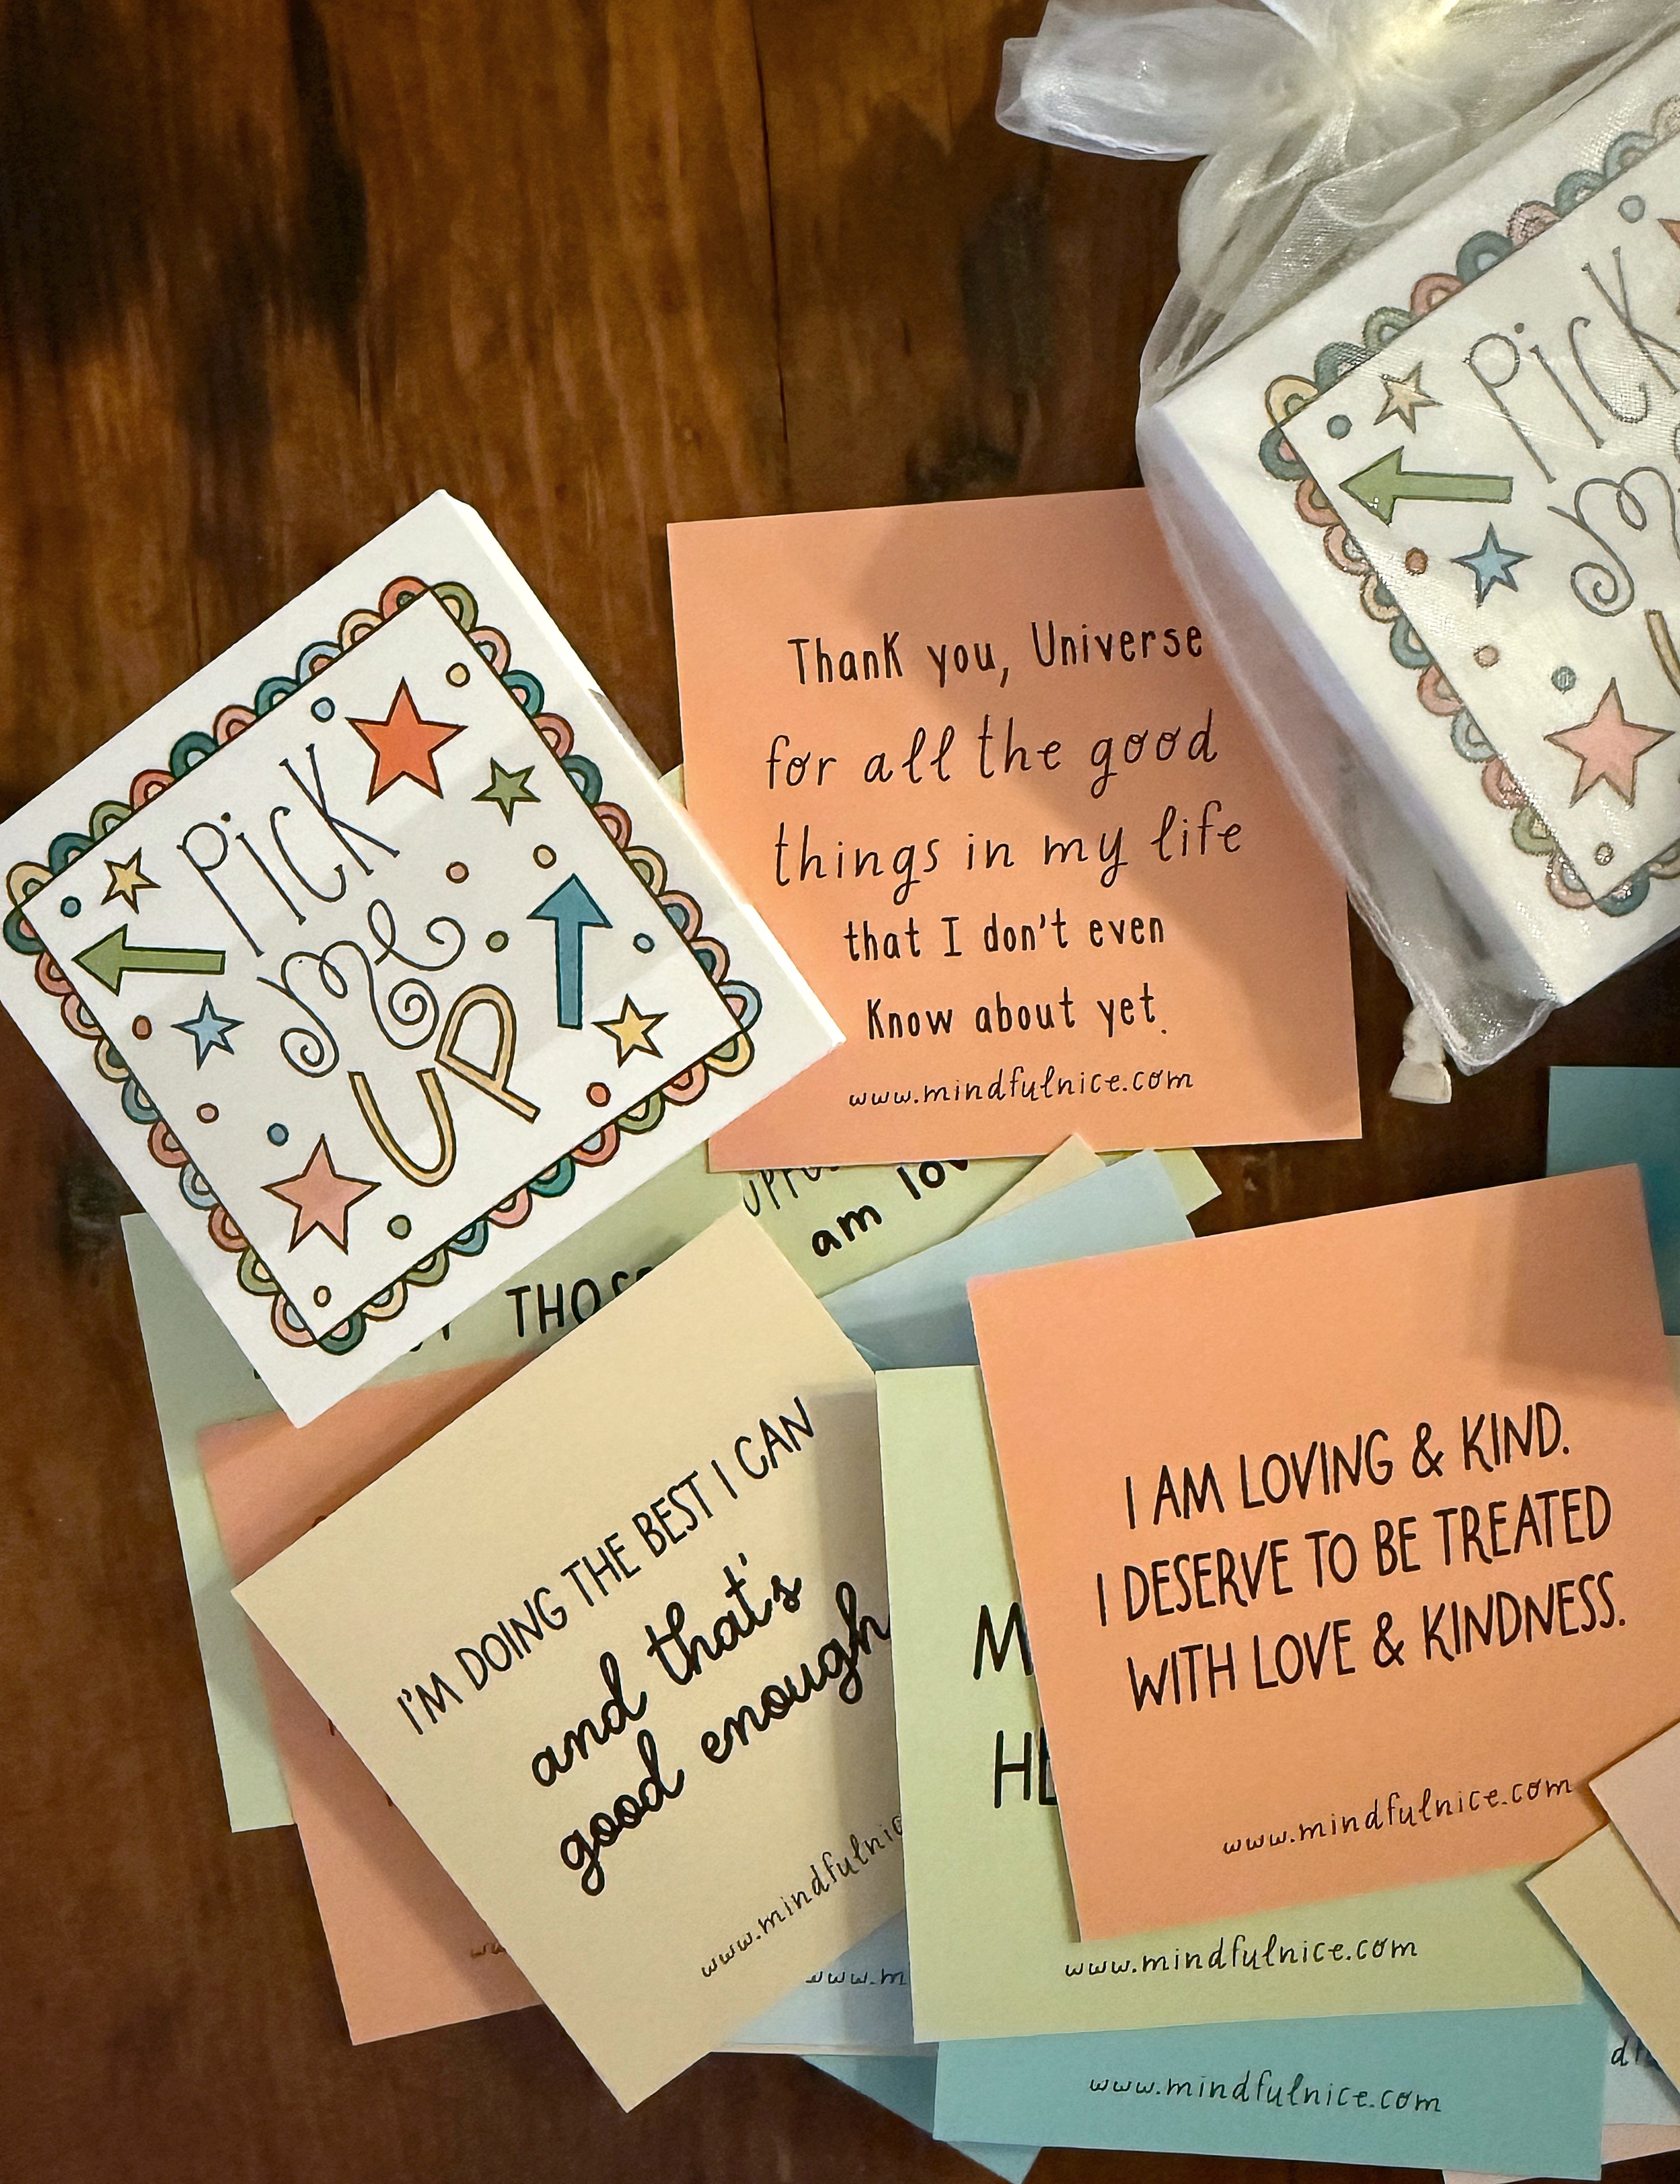 PiCK
me
UP
PiCK
Thank you, Universe
for all the good
things in my life
that I don't even
Know about yet.
www.mindfulnice.com
am
I'M DOING THE BEST I CAN
and that's
good enough
I AM LOVING & KIND.
I DESERVE TO BE TREATED
WITH LOVE & KINDNESS.
www.mindfulnice.com
www.mindfulnice.com
www.mindfulnice.com